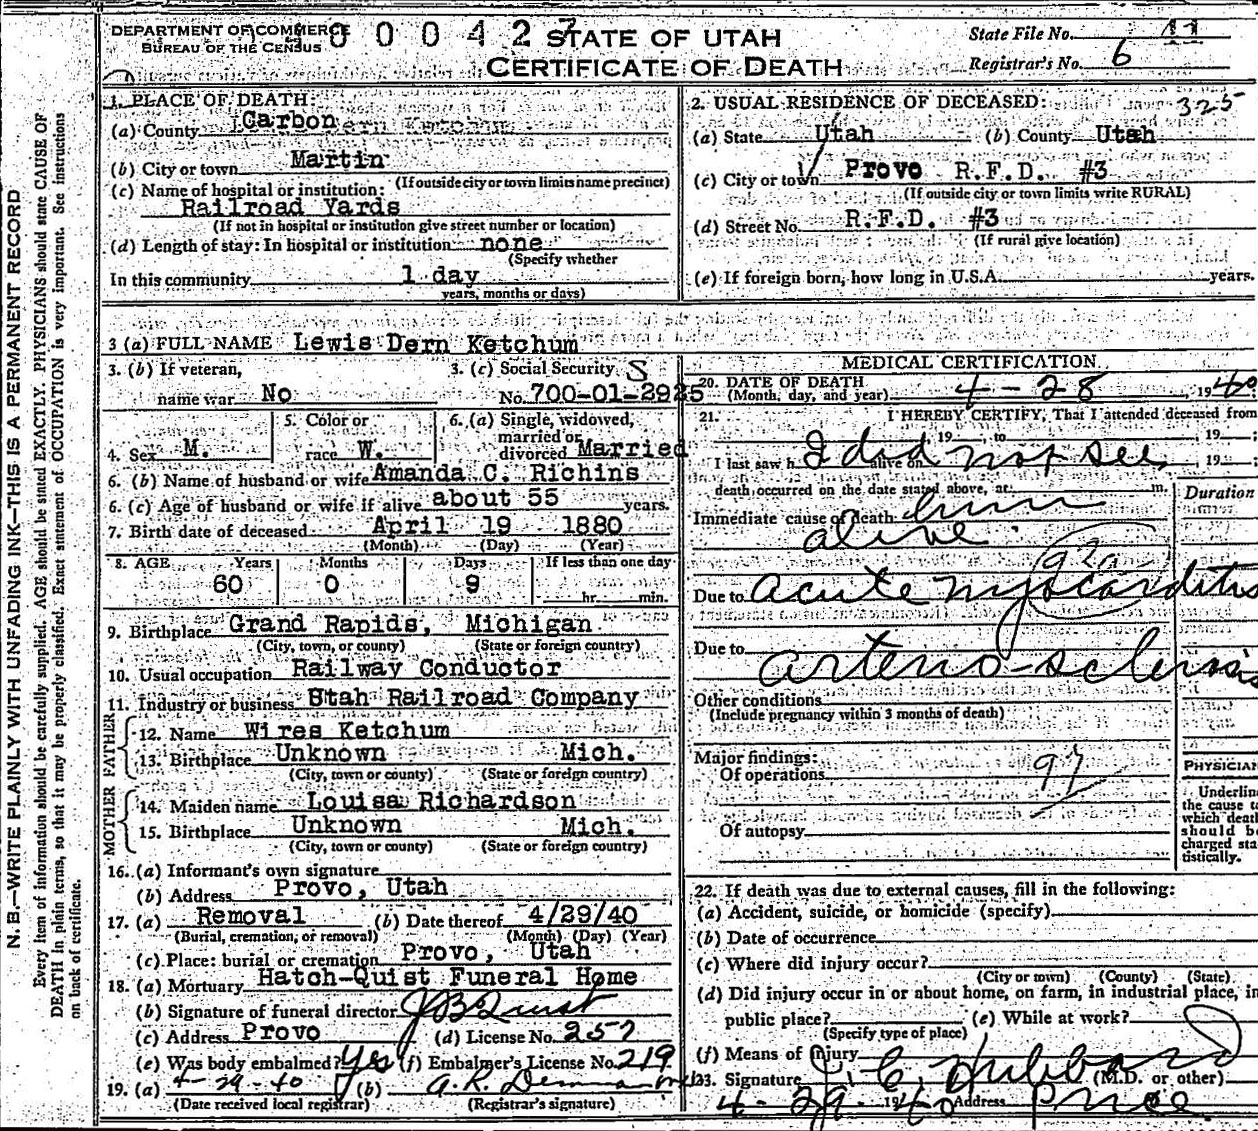 DEPARTMENT OF COMMERCE
BUREAU OF THE CENSUS
0 0 0 4 2 7
STATE OF UTAH
CERTIFICATE OF DEATH
State File No. 11
Registrar's No. 6
N. B.—WRITE PLAINLY WITH UNFADING INK—THIS IS A PERMANENT RECORD
Every item of information should be carefully supplied. AGE should be stated EXACTLY. PHYSICIANS should state CAUSE OF
DEATH in plain terms, so that it may be properly classified. Exact statement of OCCUPATION is very important. See instructions
on back of certificate.
1. PLACE OF DEATH:
(a) County Carbon
(b) City or town Martin
(If outside city or town limits name precinct)
(c) Name of hospital or institution:
Railroad Yards
(If not in hospital or institution give street number or location)
(d) Length of stay: In hospital or institution none
(Specify whether
In this community 1 day
years, months or days)
2. USUAL RESIDENCE OF DECEASED: 325
(a) State Utah (b) County Utah
(c) City or town Provo R.F.D. #3
(If outside city or town limits write RURAL)
(d) Street No. R.F.D. #3
(If rural give location)
(e) If foreign born, how long in U.S.A. years.
3 (a) FULL NAME Lewis Dern Ketchum
3. (b) If veteran, 3. (c) Social Security S
name war No No. 700-01-2925
4. Sex M. 5. Color or race W. 6. (a) Single, widowed, married or divorced Married
6. (b) Name of husband or wife Amanda C. Richins
6. (c) Age of husband or wife if alive about 55 years.
7. Birth date of deceased April 19 1880
(Month) (Day) (Year)
8. AGE Years Months Days If less than one day
60 0 9 hr. min.
9. Birthplace Grand Rapids, Michigan
(City, town, or county) (State or foreign country)
10. Usual occupation Railway Conductor
11. Industry or business Utah Railroad Company
FATHER
12. Name Wires Ketchum
13. Birthplace Unknown Mich.
(City, town or county) (State or foreign country)
MOTHER
14. Maiden name Louisa Richardson
15. Birthplace Unknown Mich.
(City, town or county) (State or foreign country)
16. (a) Informant's own signature
(b) Address Provo, Utah
17. (a) Removal (b) Date thereof 4/29/40
(Burial, cremation, or removal) (Month) (Day) (Year)
(c) Place: burial or cremation Provo, Utah
18. (a) Mortuary Hatch-Quist Funeral Home
(b) Signature of funeral director J B Quist
(c) Address Provo (d) License No. 257
(e) Was body embalmed? Yes (f) Embalmer's License No. 219
19. (a) 4-29-40 (b) A. R. Demman md
(Date received local registrar) (Registrar's signature)
MEDICAL CERTIFICATION
20. DATE OF DEATH
(Month, day, and year) 4-28, 1940
21. I HEREBY CERTIFY, That I attended deceased from
, 19 , to , 19 :
I last saw h alive on , 19 :
I did not see
death occurred on the date stated above, at m.
Duration
Immediate cause of death him
alive
92a
Due to acute myocarditis
Due to arterio-sclerosis
Other conditions
(Include pregnancy within 3 months of death)
Major findings:
Of operations 97
PHYSICIAN
Of autopsy
Underline
the cause to
which death
should be
charged sta-
tistically.
22. If death was due to external causes, fill in the following:
(a) Accident, suicide, or homicide (specify)
(b) Date of occurrence
(c) Where did injury occur?
(City or town) (County) (State)
(d) Did injury occur in or about home, on farm, in industrial place, in
public place? (e) While at work?
(Specify type of place)
(f) Means of injury
23. Signature J. C. Hubbard (M.D. or other)
4-29-1940 Address Price